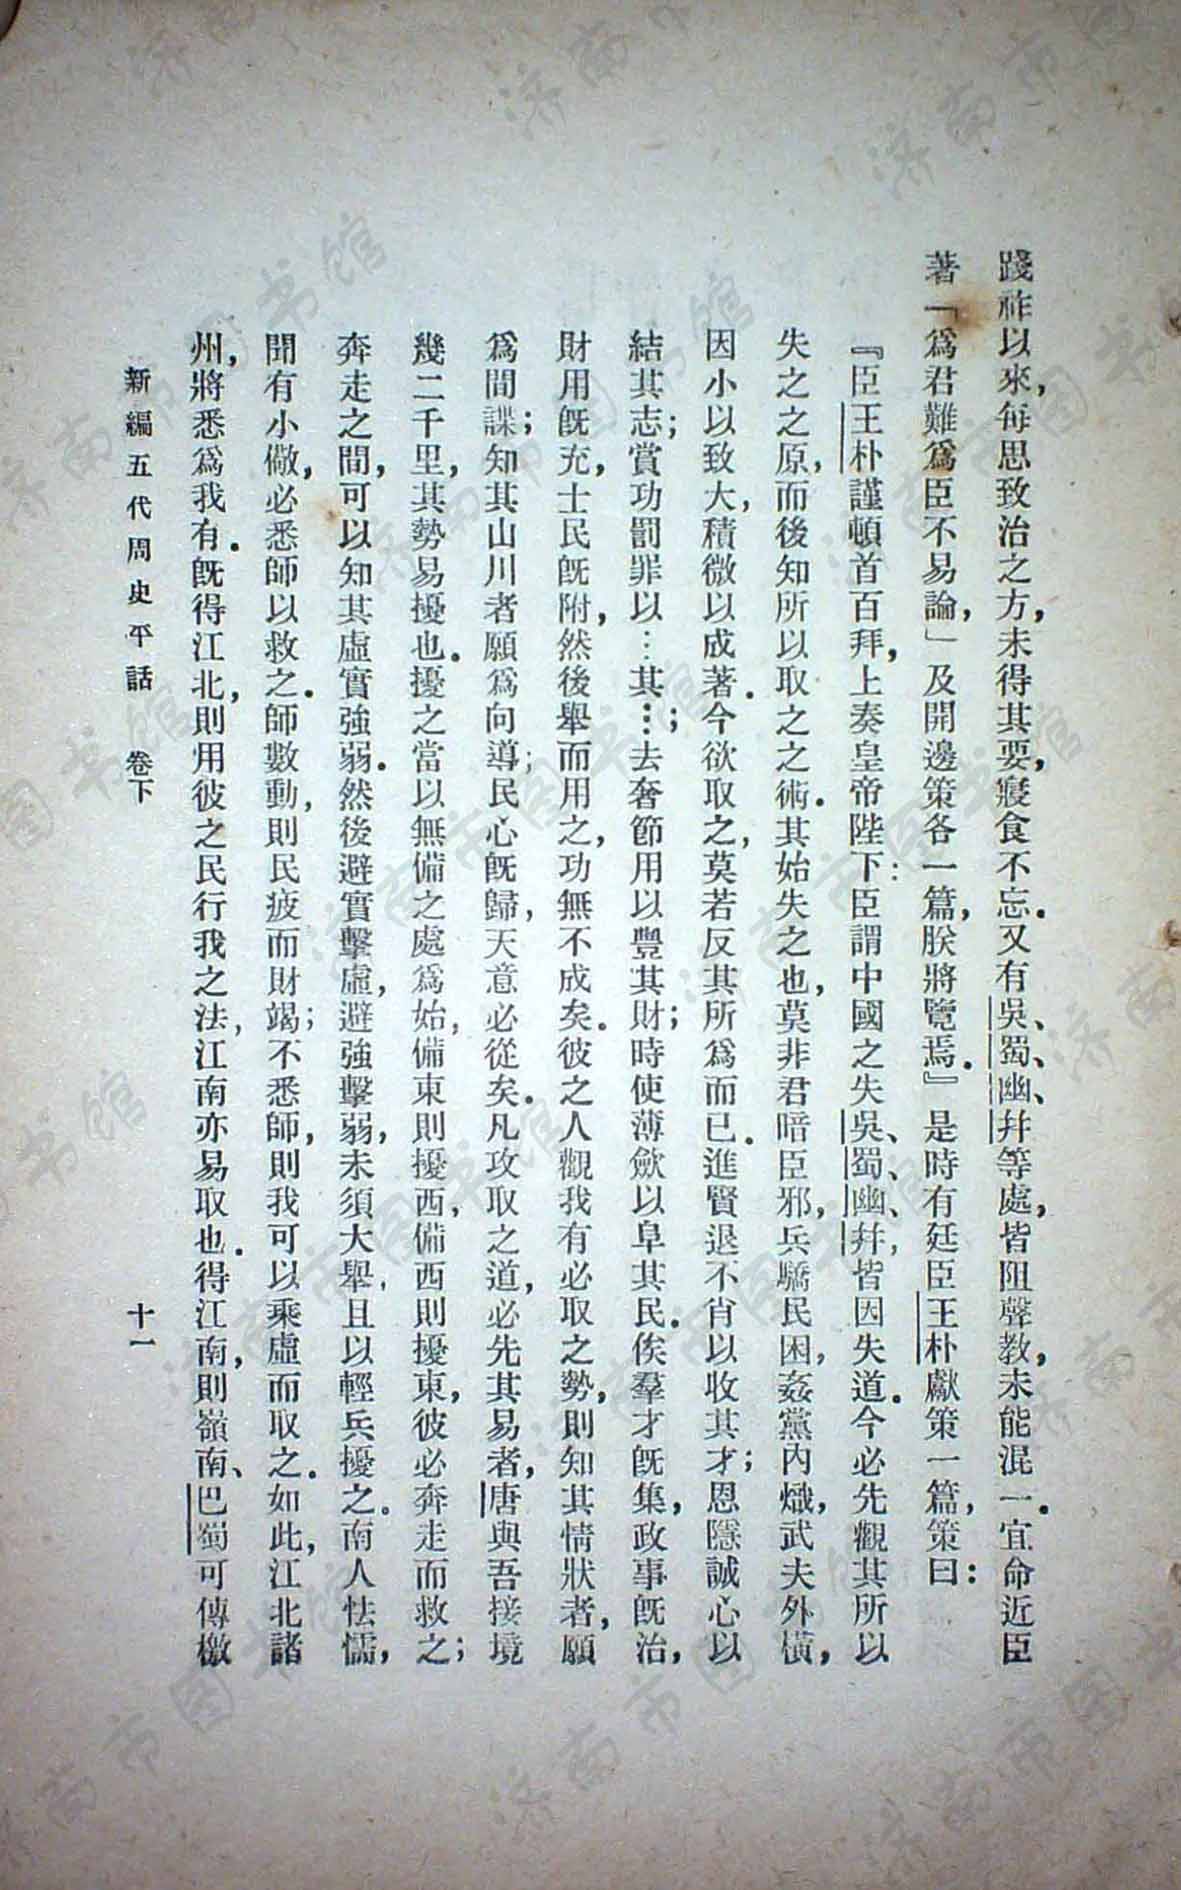 踐祚以來，每思致治之方，未得其要，寢食不忘．又有吳、蜀、幽、幷等處，皆阻聲教，未能混一．宜命近臣
著「爲君難爲臣不易論，」及開邊策各一篇，朕將覽焉．』是時有廷臣王朴獻策一篇，策曰：
『臣王朴謹頓首百拜，上奏皇帝陛下：臣謂中國之失吳、蜀、幽、幷，皆因失道．今必先觀其所以
失之之原，而後知所以取之之術．其始失之也，莫非君暗臣邪，兵驕民困，姦黨內熾，武夫外橫，
因小以致大，積微以成著．今欲取之，莫若反其所爲而已．進賢退不肖以收其才；恩隱誠心以
結其志；賞功罰罪以…其…；去奢節用以豐其財；時使薄斂以阜其民．俟羣才旣集，政事旣治，
財用旣充，士民旣附，然後舉而用之，功無不成矣．彼之人觀我有必取之勢，則知其情狀者，願
爲間諜；知其山川者願爲向導；民心旣歸，天意必從矣．凡攻取之道，必先其易者，唐與吾接境
幾二千里，其勢易擾也．擾之當以無備之處爲始，備東則擾西，備西則擾東，彼必奔走而救之；
奔走之間，可以知其虛實強弱．然後避實擊虛，避強擊弱，未須大舉，且以輕兵擾之。南人怯懦，
聞有小儆，必悉師以救之．師數動，則民疲而財竭；不悉師，則我可以乘虛而取之．如此，江北諸
州，將悉爲我有．旣得江北，則用彼之民行我之法，江南亦易取也．得江南，則嶺南、巴蜀可傳檄
新編五代周史平話　卷下　十一
济南市图书馆